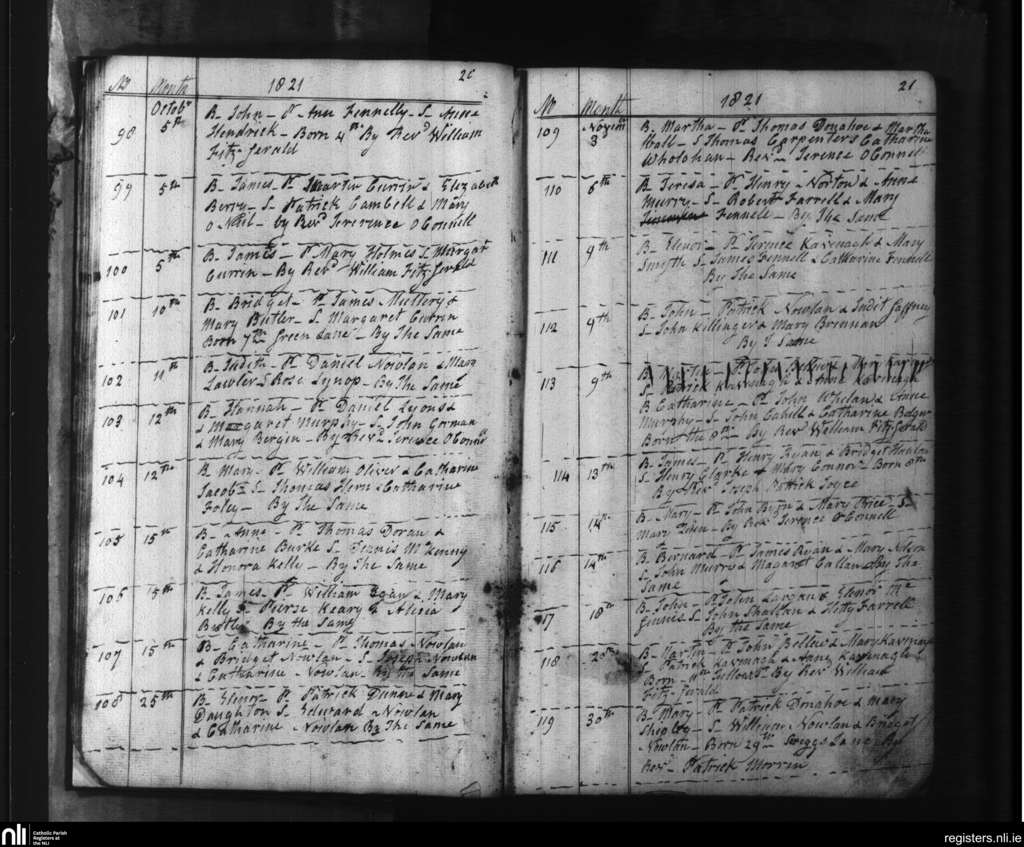 No Month 1821 20
Octobr
98 5th B. John - P. Ann Fennelly - S. Anne
Hendrick - Born 4th By Revd William
Fitz-Gerald
99 5th B. James - P. Martin Currin & Elizabeth
Berry - S. Patrick Cambell & Mary
O Neil - by Revd Tererence O Connell
100 5th B. James - P. Mary Holmes S. Margat
Currin - By Revd William Fitz Gerald
101 10th B. Bridget - P. James Mullery &
Mary Butler - S. Margaret Currin
Born 7th Green Lane - By The Same
102 11th B. Judith - P. Daniel Nowlan & Mary
Lawler S. Rose - By The Same
103 12th B. Hannah - P. Daniel Lyons &
Margaret Murphy - S. John Gorman
& Mary Bergin - By Revd Terence O Connell
104 12th B. Mary - P. William Oliver & Catharine
Jacob S. Thomas Hern & Catharine
Foley - By The Same
105 15th B - Anne - P. Thomas Doran &
Catharine Burke S - Francis McKenny
& Honora Kelly - By The Same
106 15th B. James - P. William Egan & Mary
Kelly S. Pierse Keary & Alicia
Butler By the Same
107 15th B - Catharine - P. Thomas Nowlan
& Bridget Nowlan - S. Joseph Nowlan
& Catharine Nowlan By the Same
108 25th B. Elinor P. Patrick Dunne & Mary
Daughton S. Edward Nowlan
& Catharine Nowlan By The Same
No Month 1821 21
109 Novem 3d B. Martha - P. Thomas Donahoe & Martha
Hall - S. Thomas Carpenter & Catharine
Wholohan - Revd Terence O Connell
110 6th B. Teresa - P. Henry Norton & Anne
Murry - S. Robert Farrell & Mary
Fennell - By The Same
111 9th B. Elenor - P. Terence Kavenagh & Mary
Smyth S. James Fennell & Catharine Fennell
By The Same
112 9th B. John - Patrick Nowlan & Judit Gaffney
S. John Killinger & Mary Brennan
By T. Same
113 9th
S. Patrick Kavenagh & Anne Kavenagh
B. Catharine - P. John Whelan & Anne
Murphy - S. John Cahill & Catharine Bolger
Born the 9th - By Revd William Fitz Gerald
114 13th B. James - P. Henry Ryan & Bridget
S. Henry Clarke & Mary Connor - Born 8th
By Revd Joseph Patrick Joyce
115 14th B. Mary - P. John Byrn & Mary Price S.
Mary - By Revd Terence O Connell
116 14th B. Bernard - P. James Ryan & Mary
S. John Murry & Magaret Callan By The
Same
117 18th B. John - P. John Langan & Elenor Mc
Ginnis S. John Shallan & Hetty Farrell
By the Same
118 B. Martin - P. John & Mary Kavenagh
S. Patrick Kavnagh & Anne Kavenagh
Born By Revd William
Fitz-Gerald
119 30th B. Mary - P. Patrick Donahoe & Mary
S. William Nowlan & Bridget
Nowlan - Born 29th Lane By
Revd Patrick Morrin
nli
Catholic Parish
Registers at
the NLI
registers.nli.ie